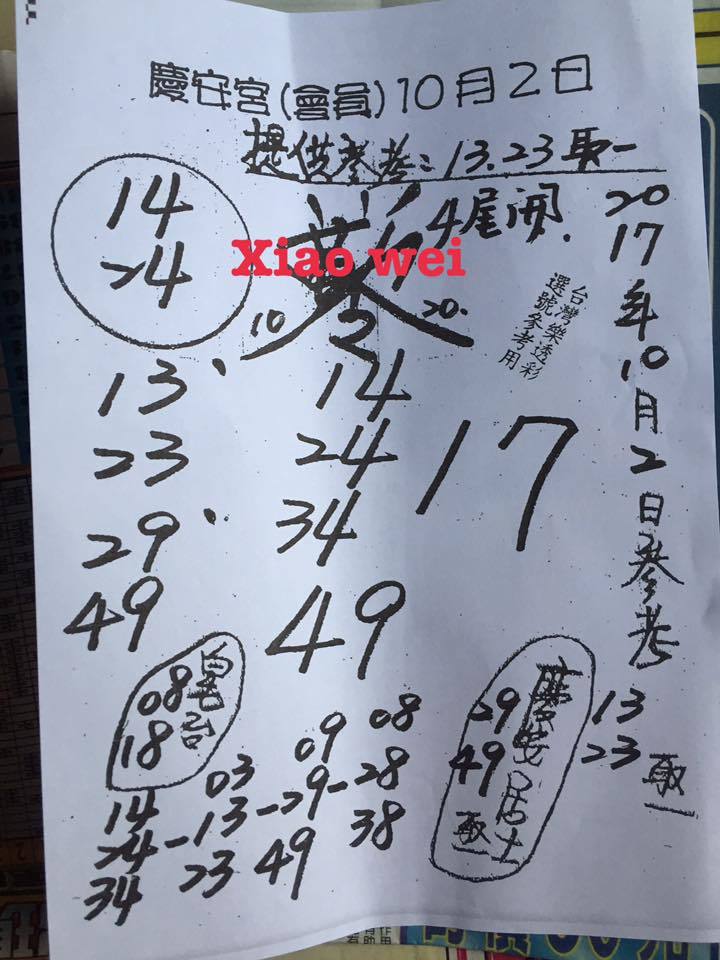 慶安宮(會員)10月2日
提供參考:13.23取一
14
24
4尾開.
Xiao wei
10
20.
2
台灣樂透彩
選號參考用
2017年10月2日參考
13
23
取一
13、
23
29、
49
14
24
34
49
17
08
18
29
49
取一
慶安居士
14
24
34
-
03
13
23
-
09
29
49
-
08
28
38